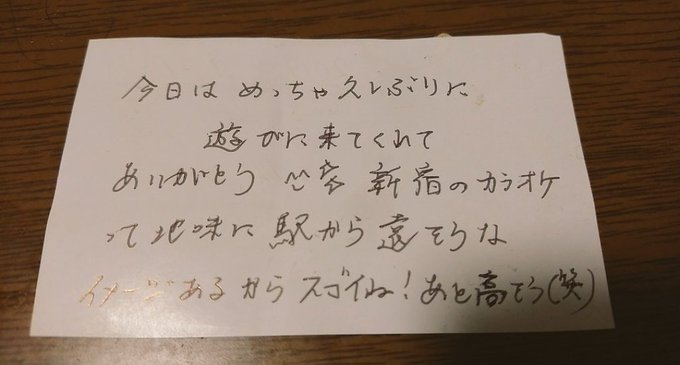 今日は めっちゃ久しぶりに
遊びに来てくれて
ありがとう 新宿のカラオケ
って地味に駅から遠そうな
イメージあるから スゴイね!あと高そう(笑)